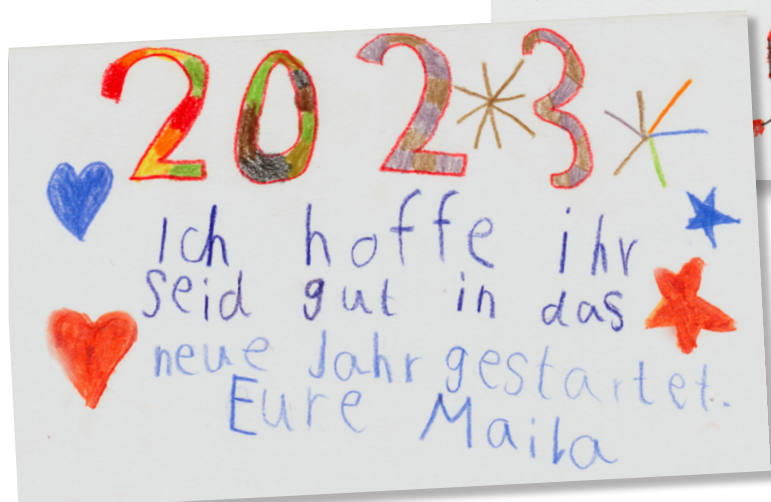 2023
Ich hoffe ihr
seid gut in das
neue Jahr gestartet.
Eure Maila